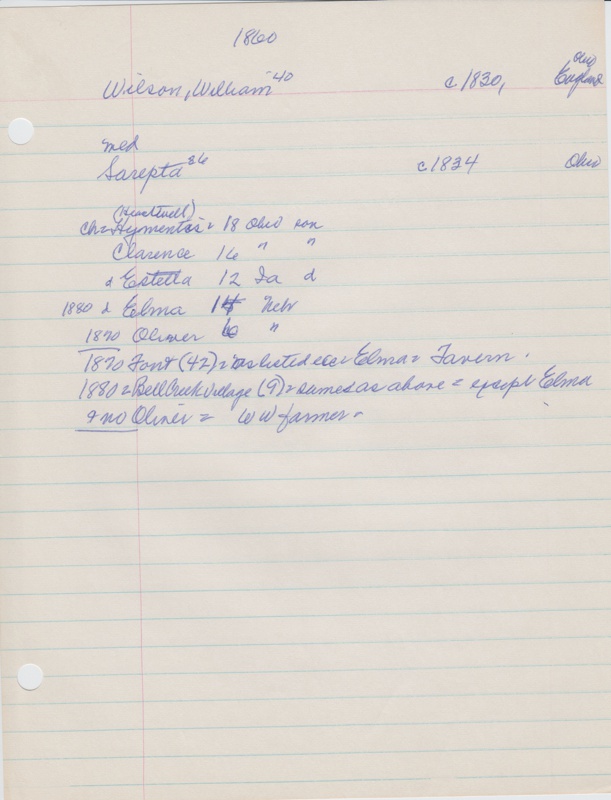 1860
Ohio
Wilson, William 40 c 1830, England
med
Sarepta 36 c 1834 Ohio
ch = 18 Ohio son
Clarence 16 " "
d Estella 12 Ia d
1880 d Elma 14 Nebr
1870 Oliver 6 "
1870 Font (42) = as listed Elma = Tavern.
1880 = Bell Creek Village (9) = same as above = except Elma
& no Oliver = WW farmer =